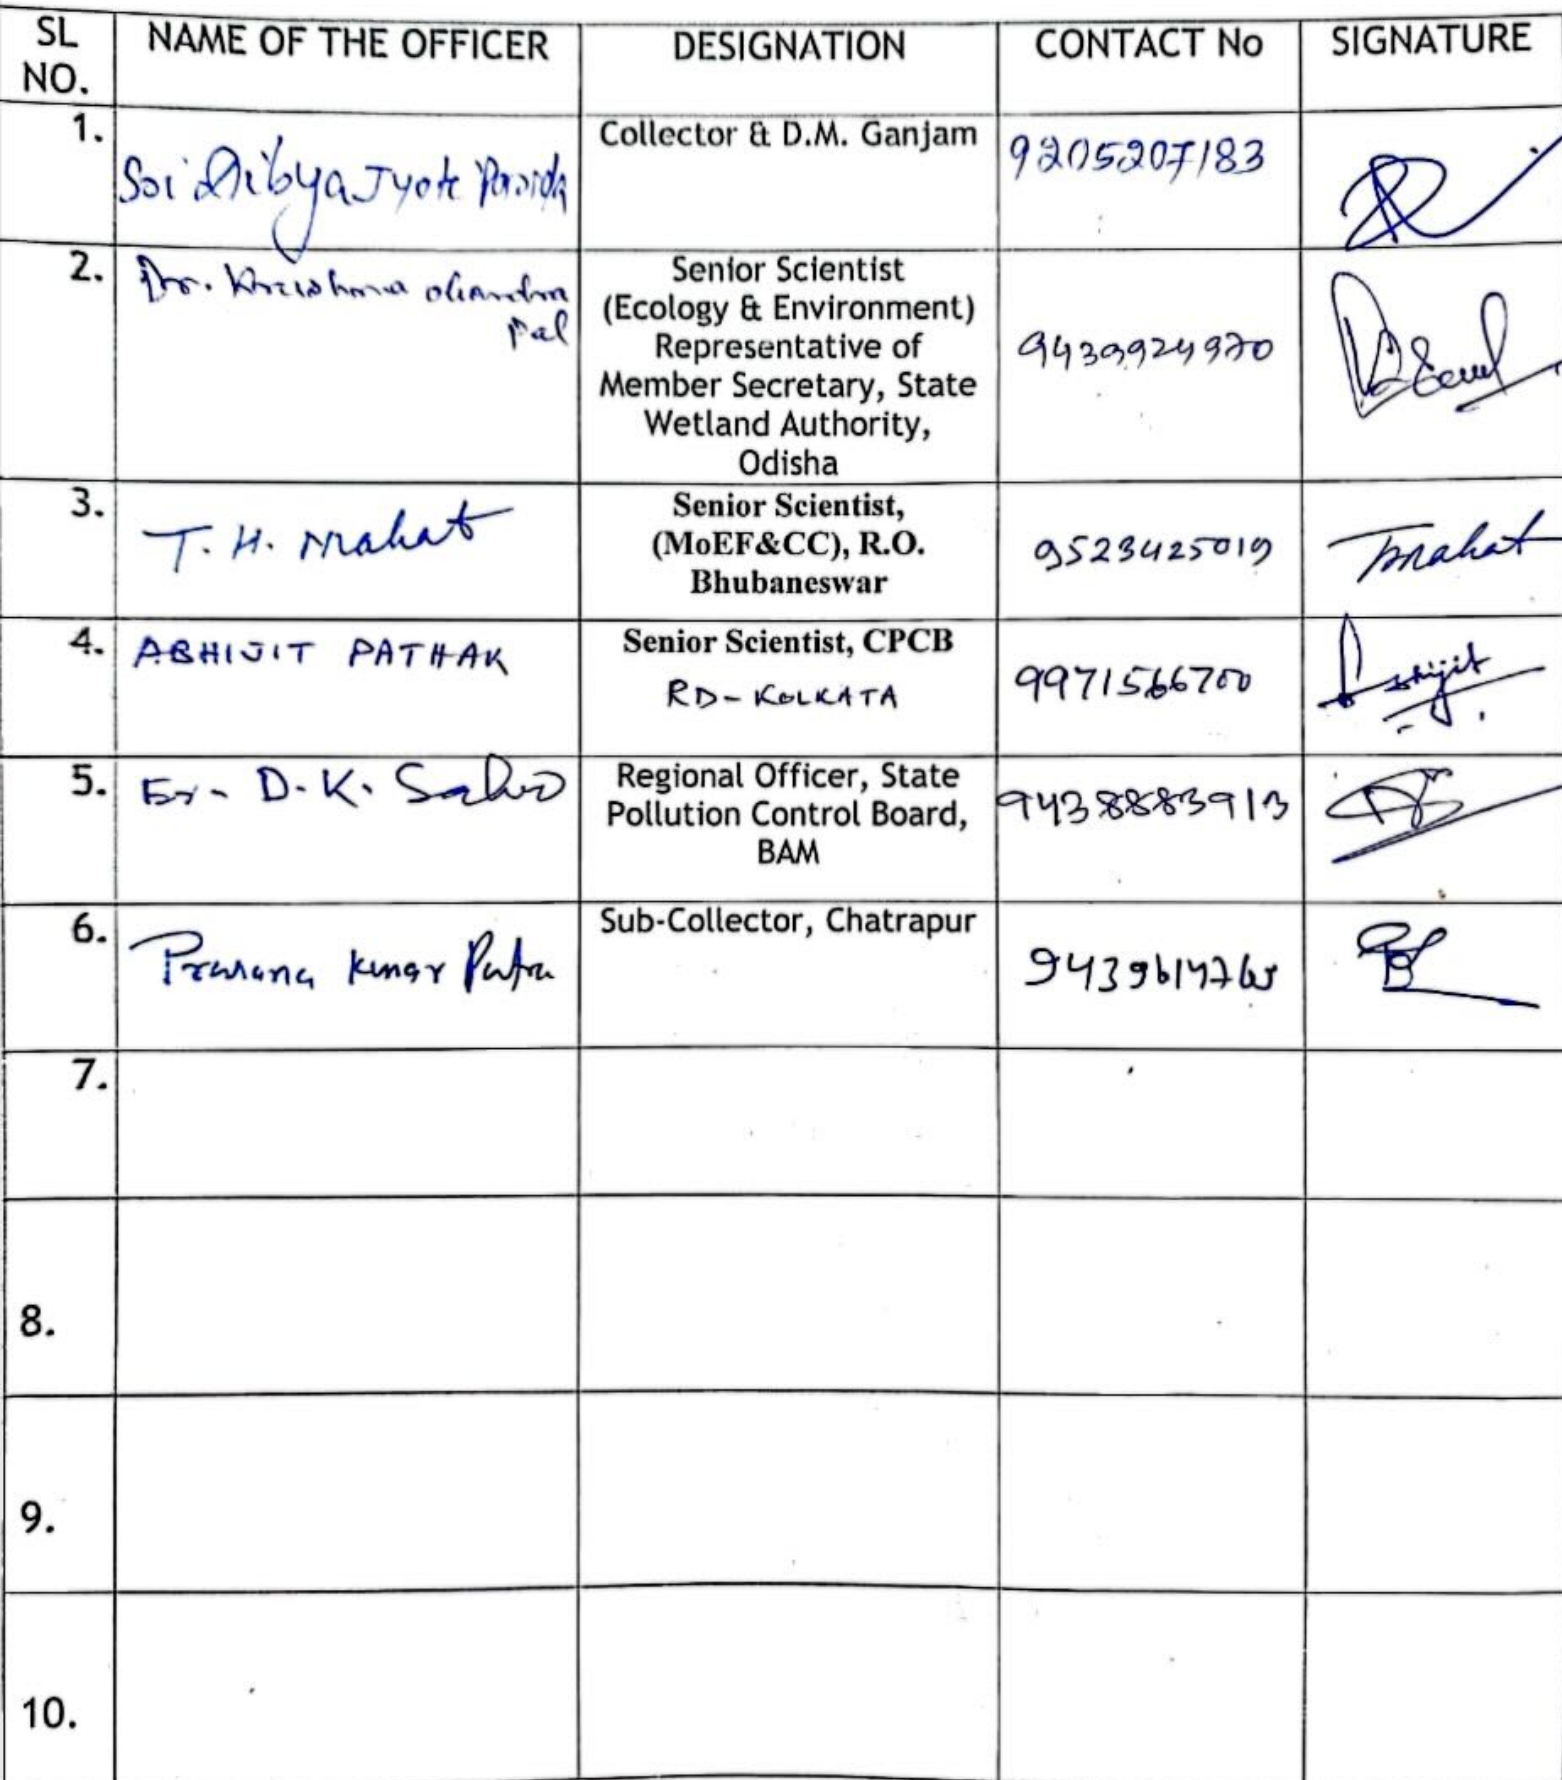 SL NO. NAME OF THE OFFICER DESIGNATION CONTACT No SIGNATURE
1.
Sri Dibya Jyoti Parida
Collector & D.M. Ganjam
9205207183
2.
Dr. Krishna chandra
Pal
Senior Scientist
(Ecology & Environment)
Representative of
Member Secretary, State
Wetland Authority,
Odisha
9439924970
3.
T. H. Mahat
Senior Scientist,
(MoEF&CC), R.O.
Bhubaneswar
9523425019
TMahat
4.
ABHIJIT PATHAK
Senior Scientist, CPCB
RD-KOLKATA
9971566700
Abhijit
5.
Er. D.K. Sahoo
Regional Officer, State
Pollution Control Board,
BAM
9438883913
6.
Kumar Patra
Sub-Collector, Chatrapur
7.
8.
9.
10.